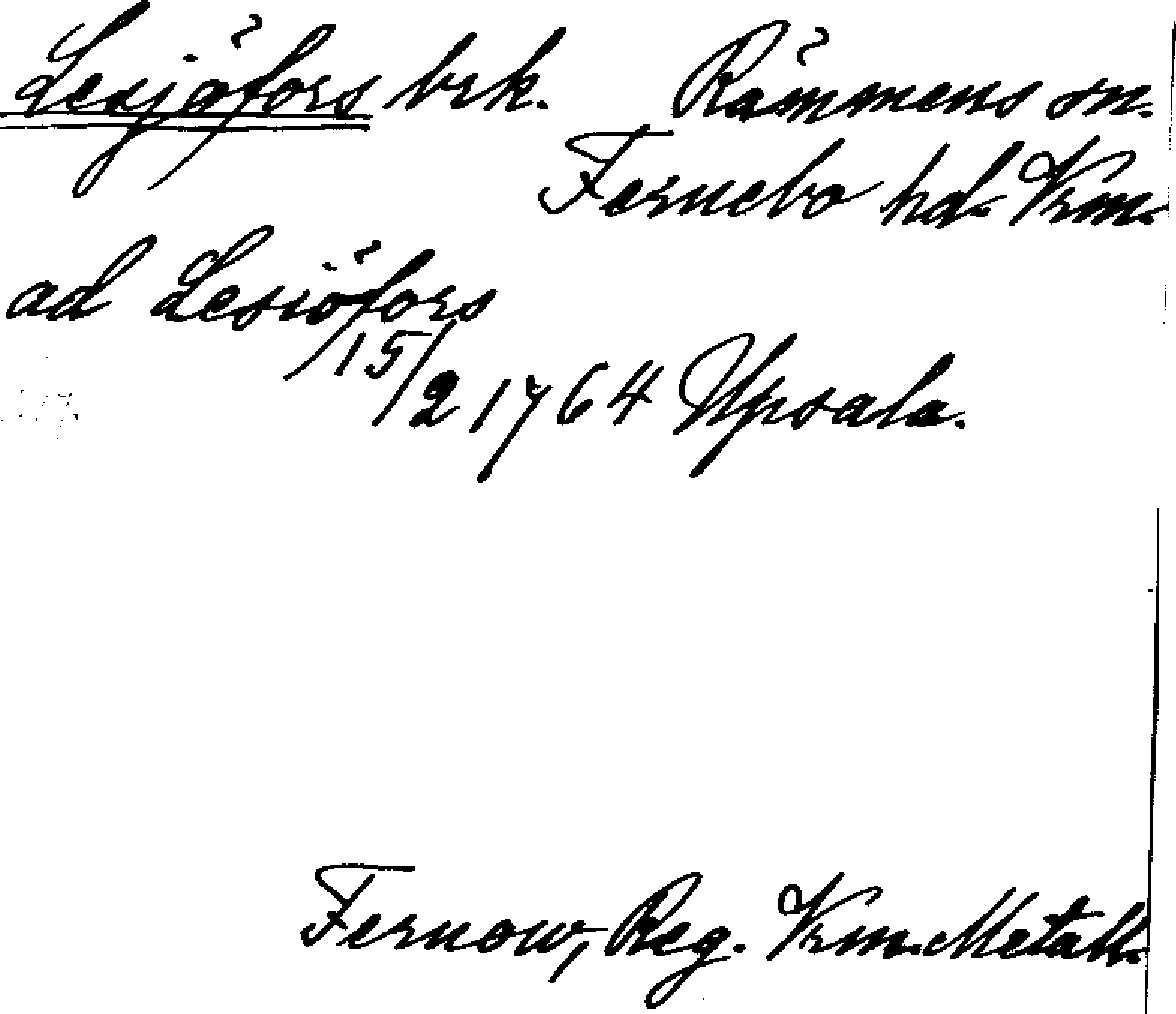 Lesjöfors brk. Rämmens sn.
Fernebo hd. Vrm.
ad Lesiöfors
15/2 1764 Upsala.
Fernow, Reg. Vrm. Metall.